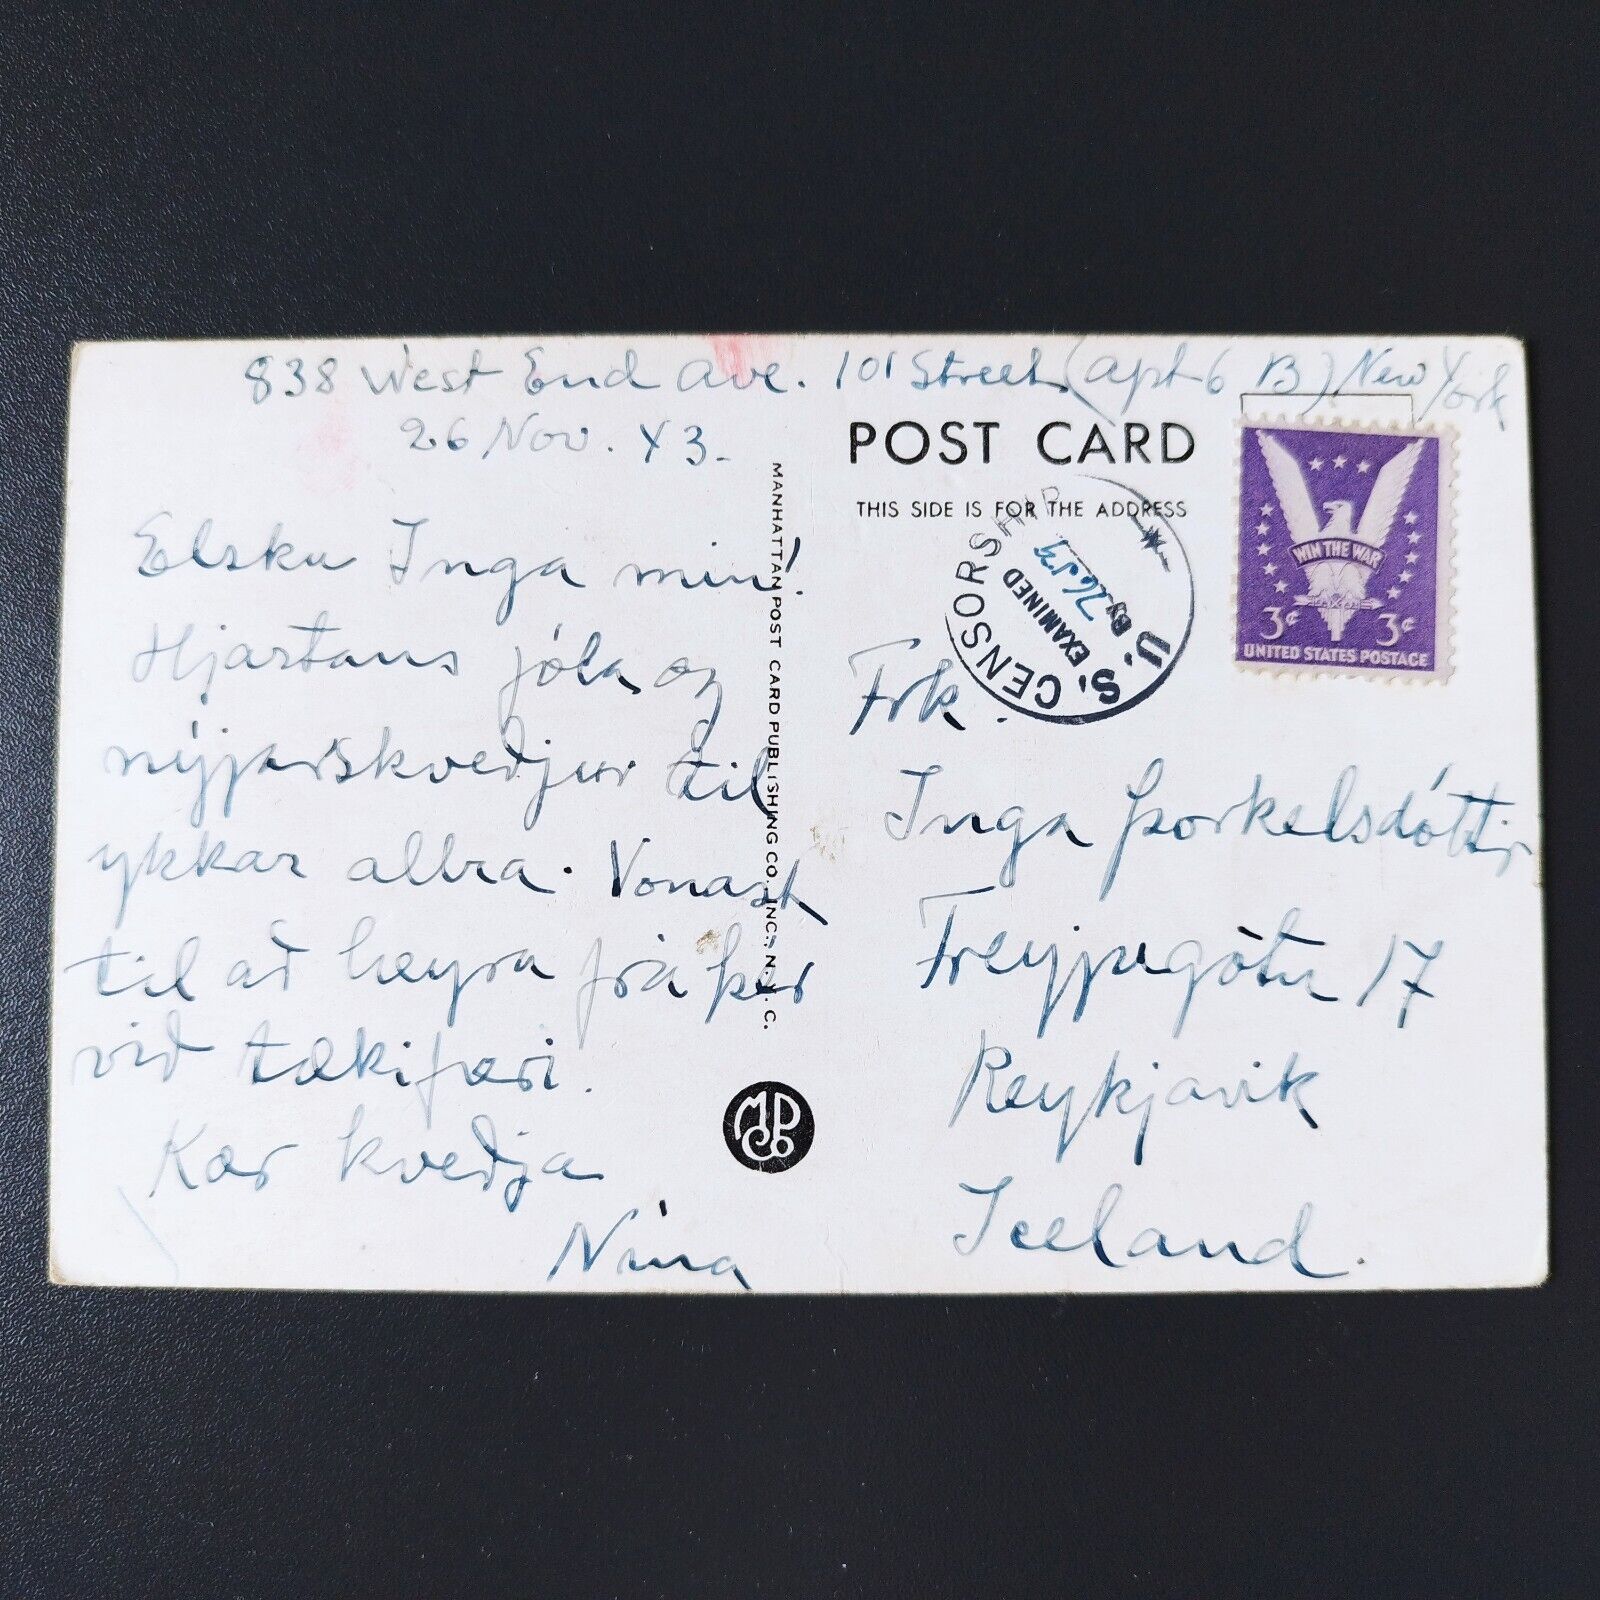 838 West End Ave. 101 Street (Apt 6 B) New York
26 Nov. 43.
Elsku Inga mín!
Hjartans jóla og
nýjarskveðjur til
ykkar allra. Vonast
til að heyra frá þér
við tækifæri.
Kær kveðja
Nína
MANHATTAN POST CARD PUBLISHING CO. INC., N.Y.C.
MPCo
POST CARD
THIS SIDE IS FOR THE ADDRESS
U.S. CENSORSHIP
EXAMINED
By
WIN THE WAR
3¢ 3¢
UNITED STATES POSTAGE
Frk.
Inga Þorkelsdóttir
Freyjugötu 17
Reykjavik
Iceland.